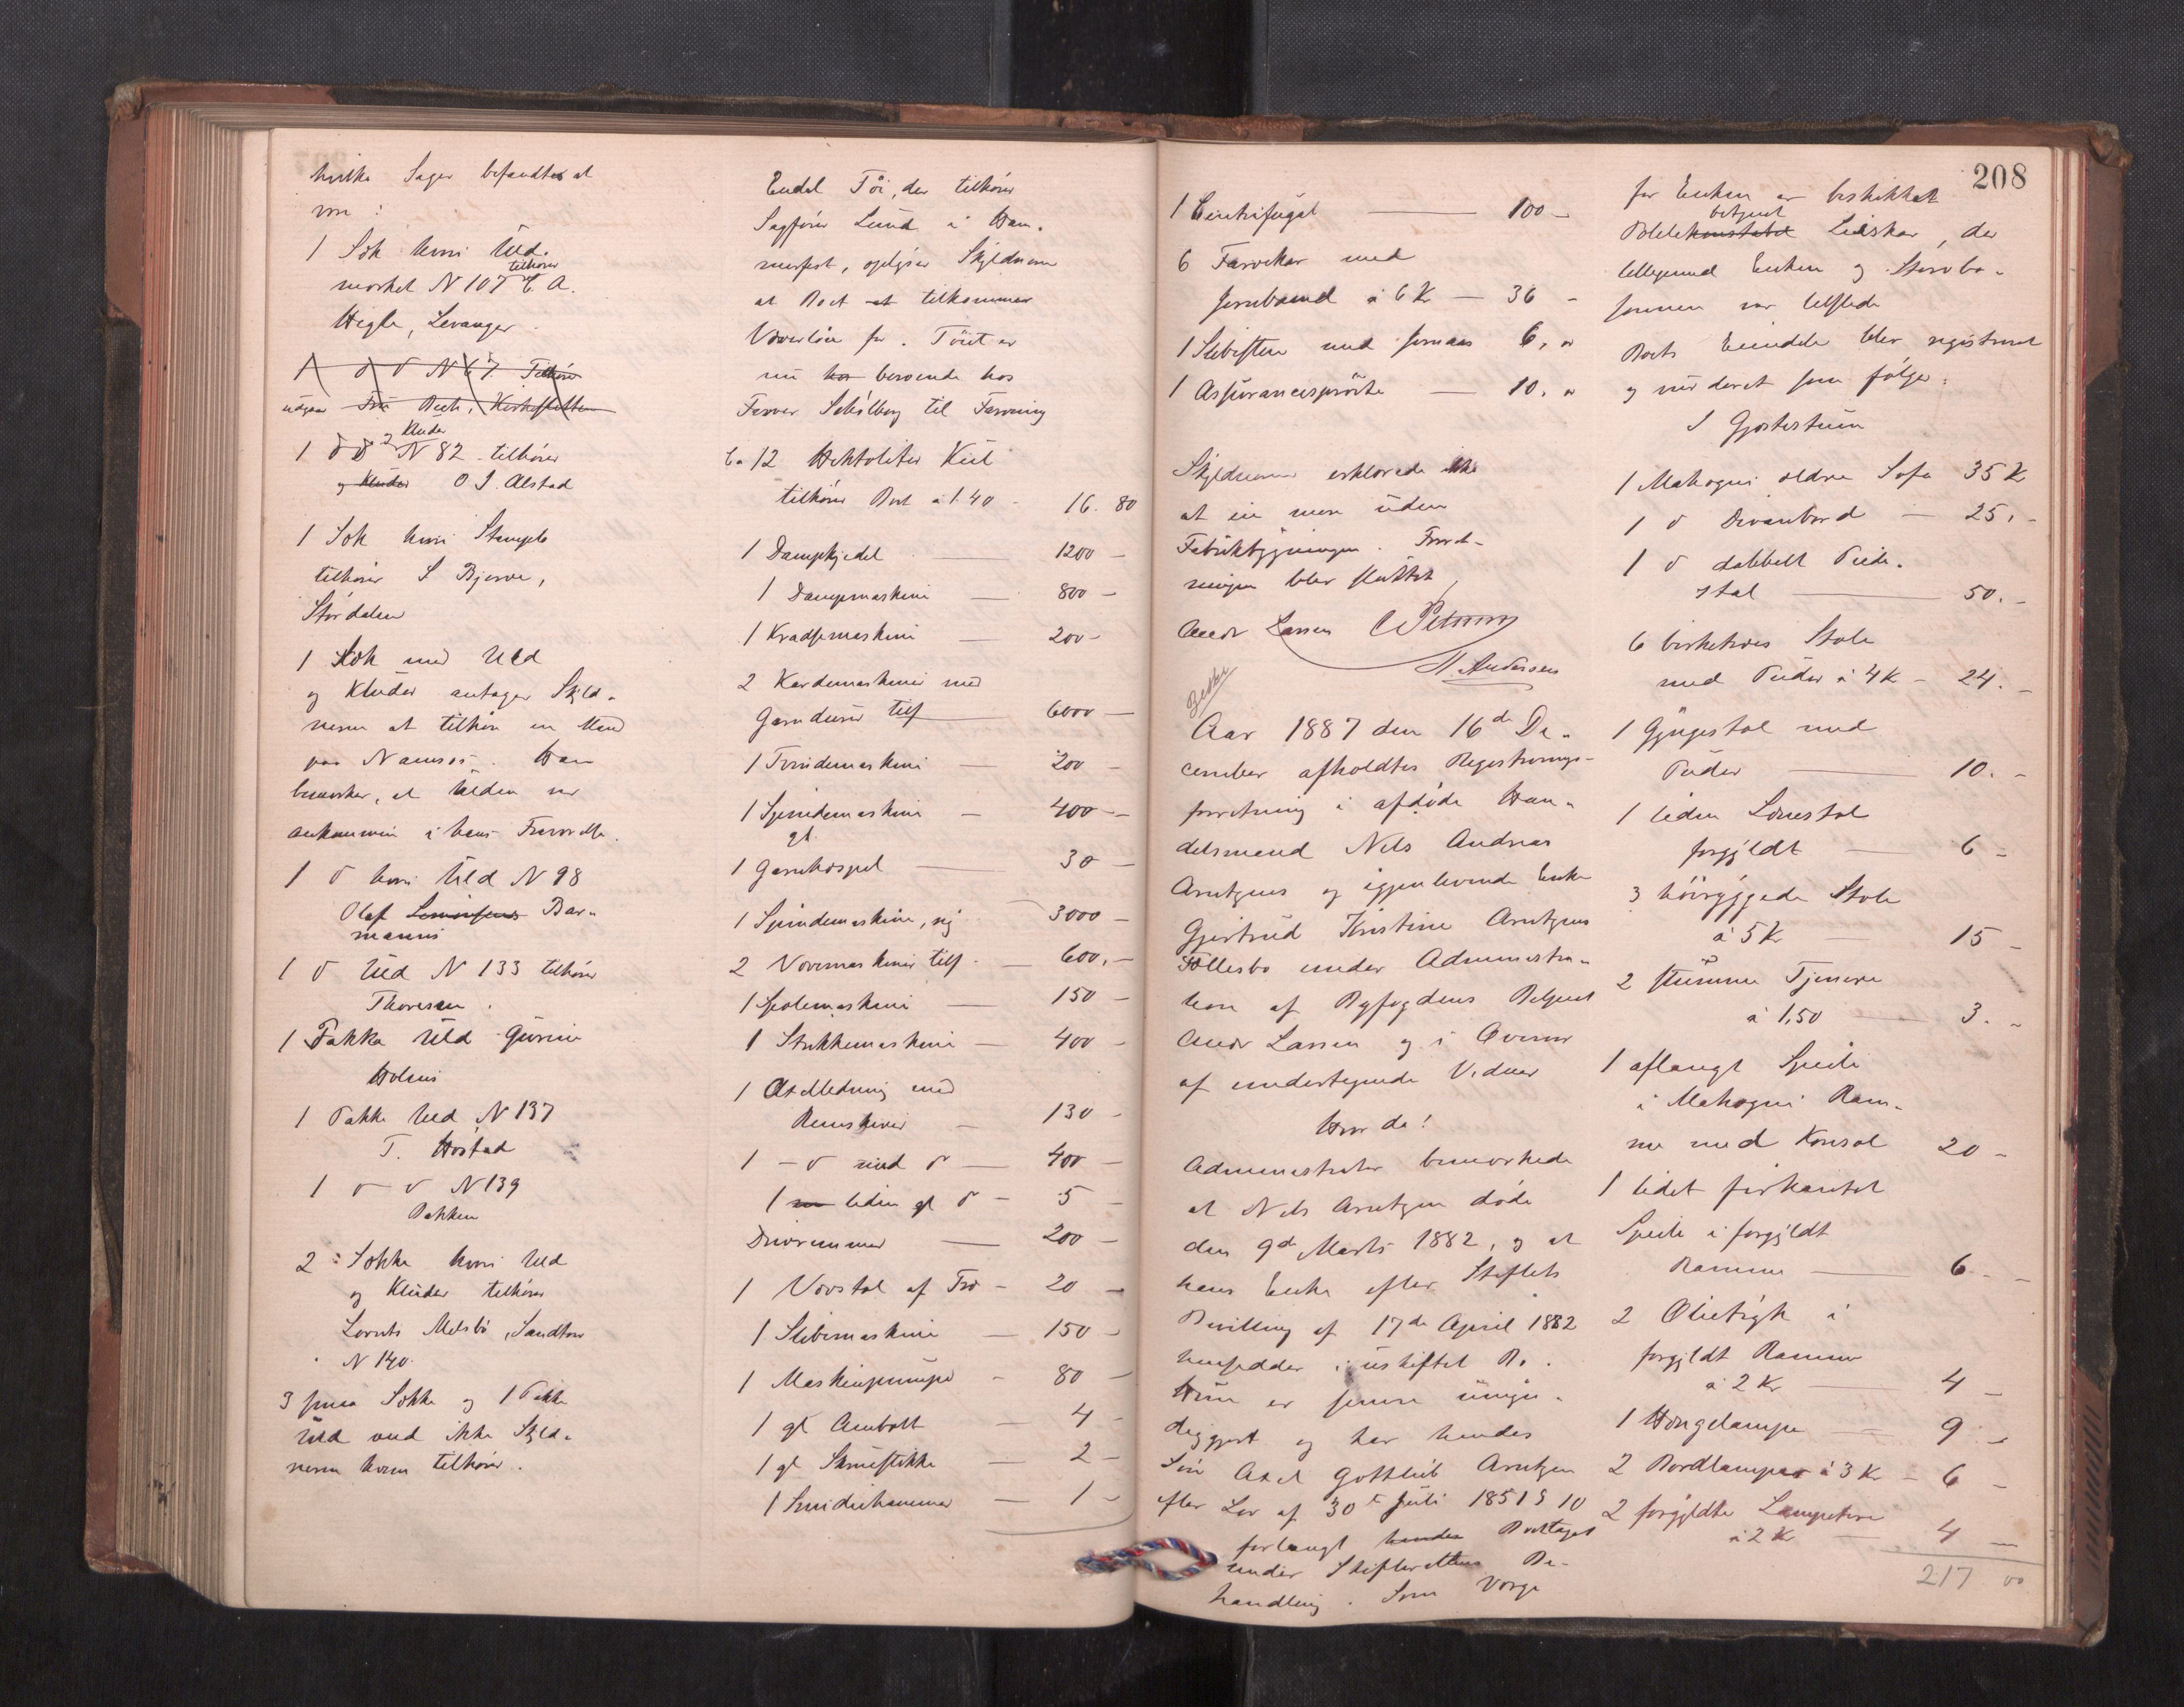 hvilke Sager befandtes at
være:
1 Sæk hvori Uld.
tilhører
mærket N 107 E. A.
Hegle, Levanger
1 d d N 67. Tilhører
udgaar Fru Bech, Kirkesletten
Kluder
1 d d N 82 tilhører
og Kluder O J. Alstad
1 Sæk hvori Stampet
tilhører S Bjerve,
Størdalen
1 Sæk med Uld
og Kluder antager Skyld-
neren at tilhøre en Mand
paa Namsos. Han
bemærker, at Ulden var
ankommen i hans Fravær.
1 d hvori Uld N 98
Olaf Simonsens Bar-
manns
1 d Uld N 133 tilhører
Thoresen.
1 Pakke Uld Gurine
Holmis
1 Pakke Uld N 137
T. Hostad
1 d d N 139
Bakken
2 Sække hvori Uld
og Kluder tilhører
Lornts Melsbø, Sandtorv
N 140.
3 smaa Sække og 1 Pakke
Uld ved ikke Skyld-
neren hvem tilhører.
Endel Tøi, der tilhører
Sagfører Lund i Ham-
merfest, oplyser Skyldneren
at Boet tilkommer
Væverløn for. Tøiet er
nu beroende hos
Farver Schjølberg til Farvning
Ca 12 Hektoliter Kul
tilhører Boet à 1 40 - 16. 80
1 Dampkjedel — 1200 —
1 Dampmaskine — 800 —
1 Kradsemaskine — 200 —
2 Kardemaskiner med
Garnduser tils — 6000 —
1 Tvindemaskine — 200 —
1 Spindemaskine — 400 —
gl.
1 Garnhaspel — 30 —
1 Spindemaskine, ny 3000 —
2 Vævemaskiner tils. — 600. —
1 Spolemaskine — 150 —
1 Strikkemaskine — 400 —
1 Axelledning med
Remskiver — 130 -
1 — d med d — 400 —
1 liden gl d — 5 —
Drivremmer — 200 —
1 Vævstol af Træ — 20 —
1 Slibemaskine — 150 —
1 Maskinpumpe - 80 —
1 gl Ambolt — 4 -
1 gl Skruestikke — 2 —
1 Smidiehammer — 1 —
208
1 Centrifugal — 100 —
6 Farvekar med
Jernbaand à 6 Kr — 36 -
1 Slibesten med Jernaas 6, "
1 Assurancesprøite — 10. "
Skyldneren erklærede ikke
at eie mere uden
Fabrikbygningen. Forret-
ningen blev sluttet
Andr Larsen C Petersen
N. Andersen
Aar 1887 den 16de De-
cember afholdtes Registrerings-
forretning i afdøde Han-
delsmand Nils Andreas
Arntzens og igjenlevende Enke
Gjertrud Kristine Arntzens
Fællesbo under Administra-
tion af Byfogdens Betjent
Andr Larsen og i Overvær
af undertegnede Vidner
Hvor da!
Administrator bemærkede
at Nils Arntzen døde
den 9de Marts 1882, og at
hans Enke efter Stiftets
Bevilling af 17de April 1882
hensidder i uskiftet Bo.
Hun er senere umyn-
diggjort og har hendes
Søn Axel Gottlieb Arntzen
efter Lov af 30te Juli 1851 § 10
forlangt hendes Bo tages
under Skifterettens Be-
handling. Som Værge
for Enken er beskikket
betjent
Politikonstabel Leiskar, der
tilligemed Enken og Stervbo-
sønnen var tilstede
Boets Eiendele blev registreret
og vurderet som følger:
I Gjæstestuen
1 Mahogni ældre Sofa 35 Kr
1 d Divanbord — 25. -
1 d dobbelt Pude-
stol — 50. -
6 birketræes Stole
med Puder à 4 Kr — 24. -
1 Gyngestol med
Puder — 10. -
1 liden Lænestol
forgyldt — 6 -
3 høiryggede Stole
à 5 Kr — 15 -
2 stumme Tjenere
à 1,50 — 3. -
1 aflangt Speile
i Mahogni Ram-
me med Konsol 20 -
1 lidet firkantet
Speile i forgyldt
Ramme — 6 - -
2 Olietryk i
forgyldt Ramme
à 2 Kr — 4 -
1 Hængelampe — 9. -
2 Bordlamper à 3 Kr — 6 -
2 forgyldte Lampetter
à 2 Kr — 4 —
217 00